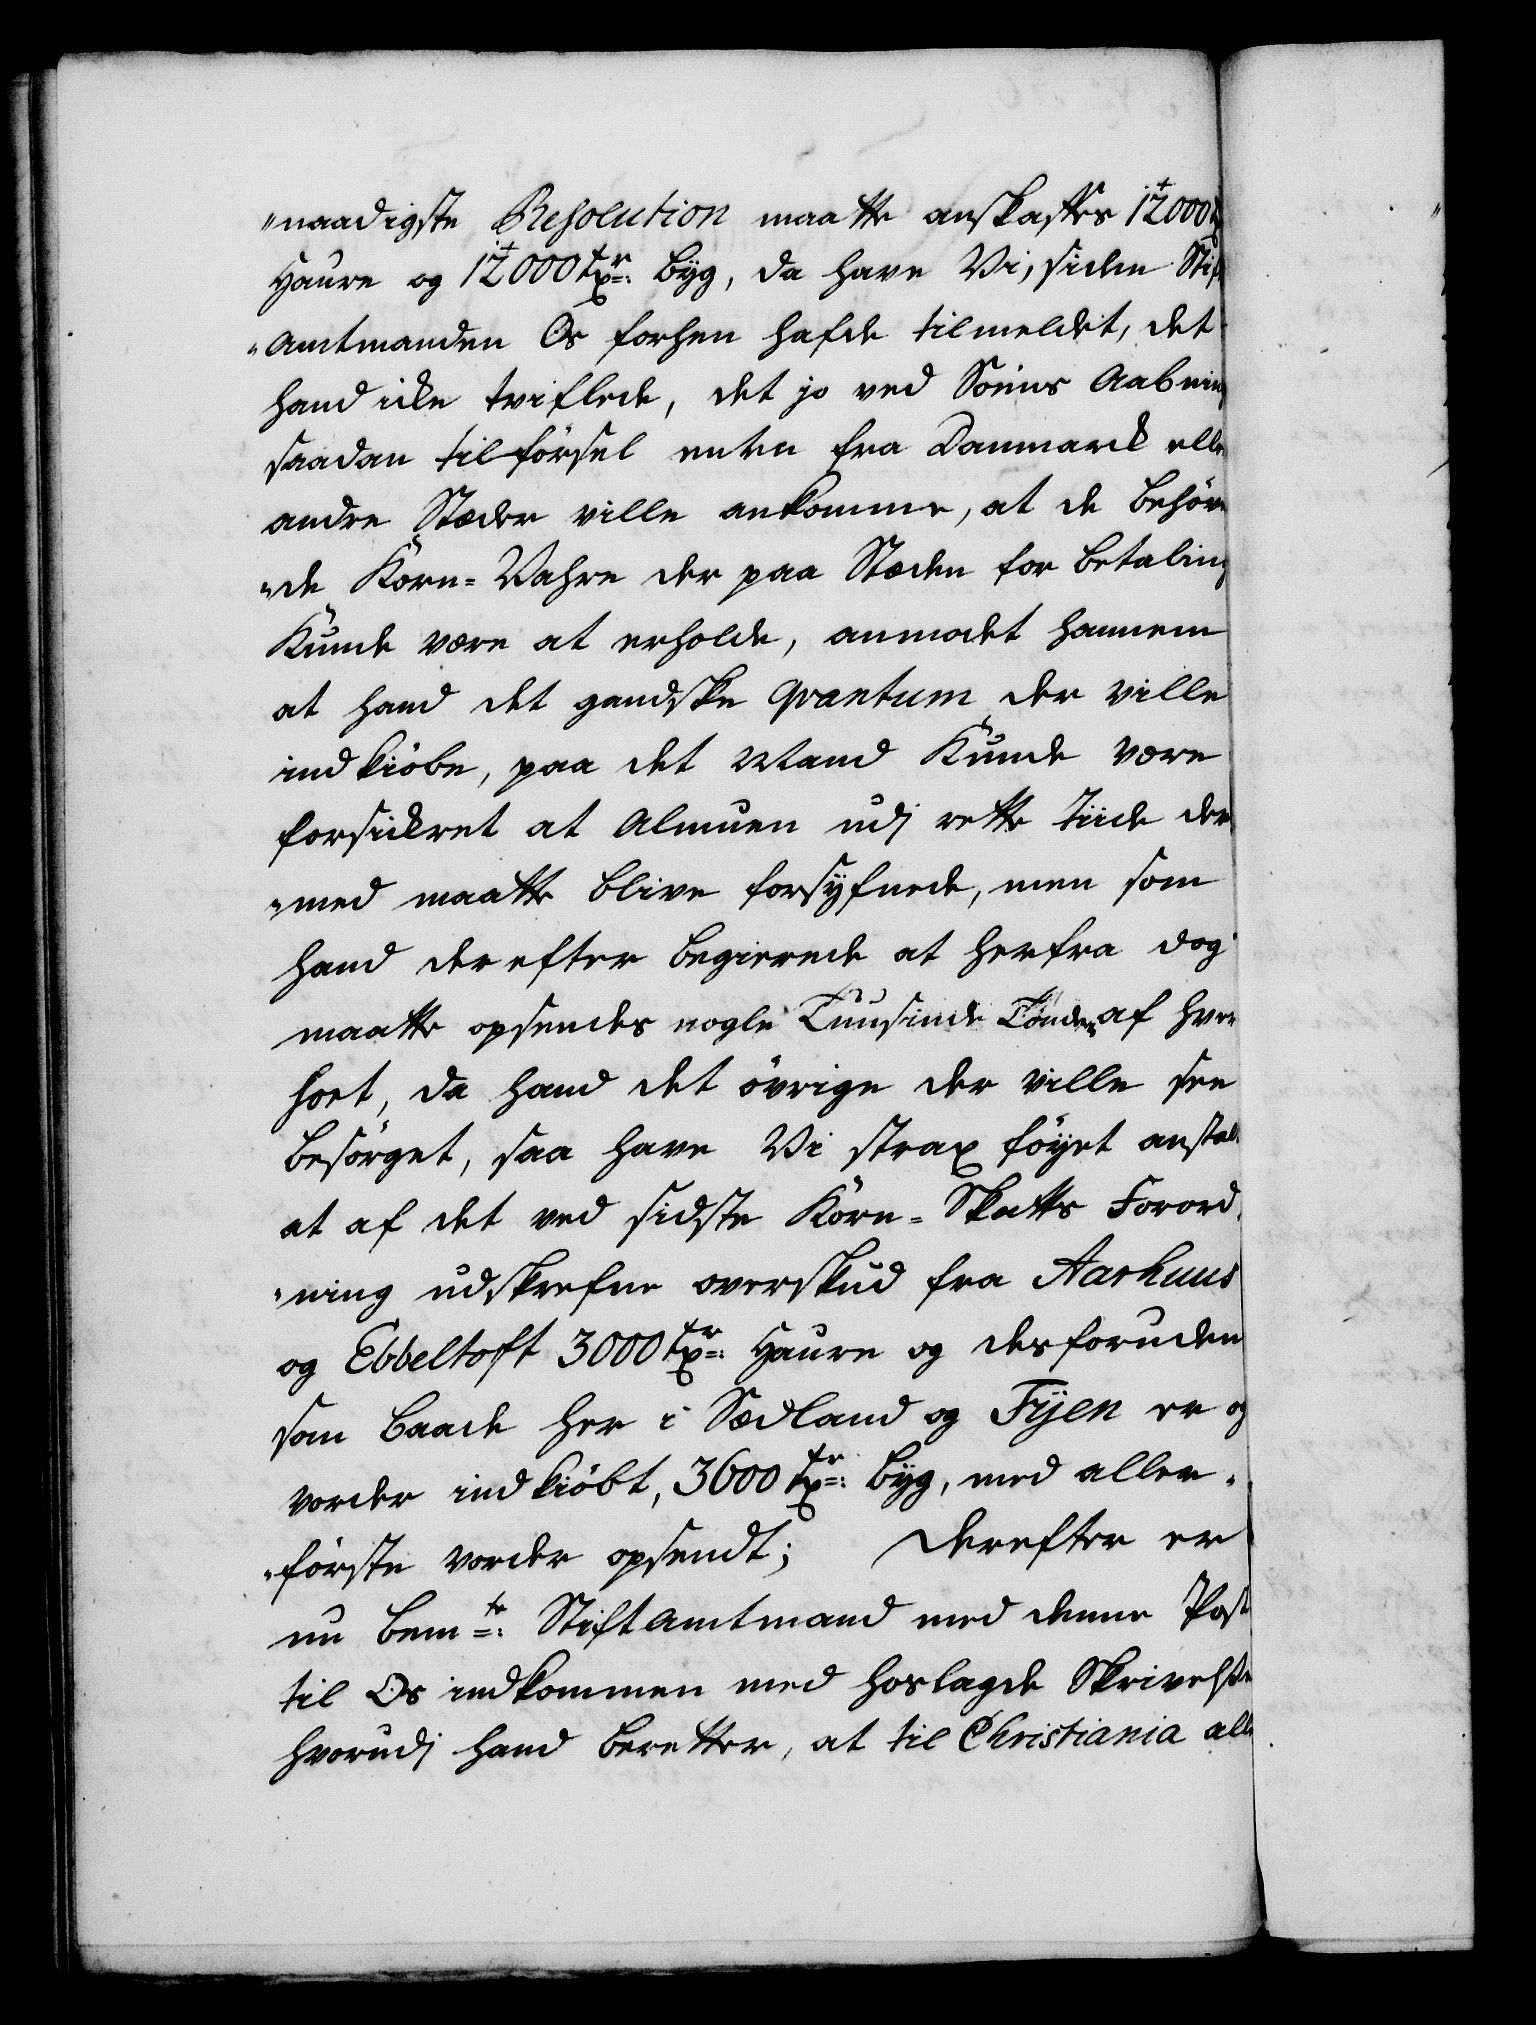 "naadigste Resolution maatte anskaffes 12000
Haure og 12000 Tdr: Byg, da have Vi, siden Stif
"Amtmanden Os forhen hafde tilmeldet, det
hand icke tviflede, det jo ved Söens Aabning
saadan tilförsel enten fra Danmarck elle
andre Stæder ville ankomme, at de behöve
"de Korn-Vahre der paa Stæden for betaling
Kunde være at erholde, anmodet hannem
at hand det gandske qvantum der ville
indkiöbe, paa det Mand Kunde være
forsickret at Almuen udj rette Tiide der
"med maatte blive forsÿfnede, men som
hand derefter begierede at herfra dog
maatte opsendes nogle Tuusinde Tönder af hver
sort, da hand det övrige der ville see
besörget, saa have Vi strax föyet anstalt
at af det ved sidste Korn-Skatts Forord
"ning udskrefne overskud fra Aarhuus
og Ebbeltoft 3000 Tdr: Haure og desforuden
som baade her i Sædland og Fÿen er og
vorder indkiöbt, 3600 Tdr: Byg, med aller
"förste vorder opsendt; Derefter er
nu bemte: StiftAmtmand med denne Post
til Os indkommen med hoslagde Skrivelse
hvorudj hand beretter, at til Christiania alle